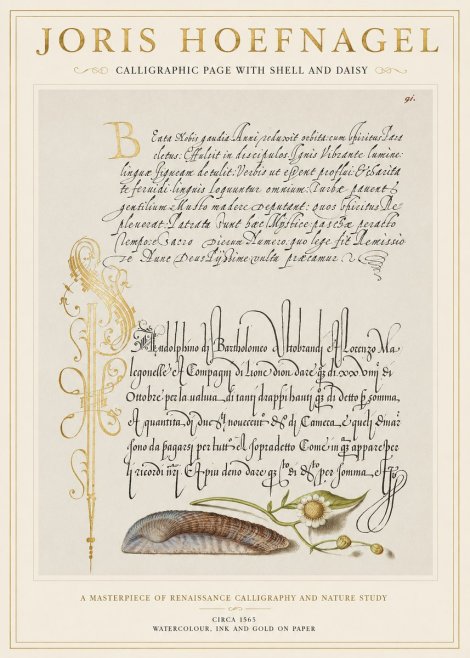 JORIS HOEFNAGEL
CALLIGRAPHIC PAGE WITH SHELL AND DAISY
91.
BEata Nobis gaudia Anni reduxit orbita: cum spiritus Para
cletus: Effulsit in discipulos. Ignis Vibrante lumine:
linguæ figuram detulit: Verbis ut essent proflui: Et charita
te feruidi: linguis loquuntur omnium: Turbæ pauent
gentilium: Musto madere Deputant: quos Spiritus Re
pleuerat: Patrata sunt hæc Mystice: paschæ peracto
tempore: Sacro dierum Numero: quo lege fit Remissio
Nunc Deus piissime vultu præcamur
Pandolphino di Bartholomeo Lorenzo Ma
legonelle Et Compagni di Lione dion dare
Ottobre per la ualuta di tanti drappi hauti di detto somma
quantita di nouecento di Camera, e queli dinar
sono da pagarsi per tutto il sopradetto Come in appare per
li ricordi Et piu deno dare di per somma
A MASTERPIECE OF RENAISSANCE CALLIGRAPHY AND NATURE STUDY
CIRCA 1565
WATERCOLOUR, INK AND GOLD ON PAPER